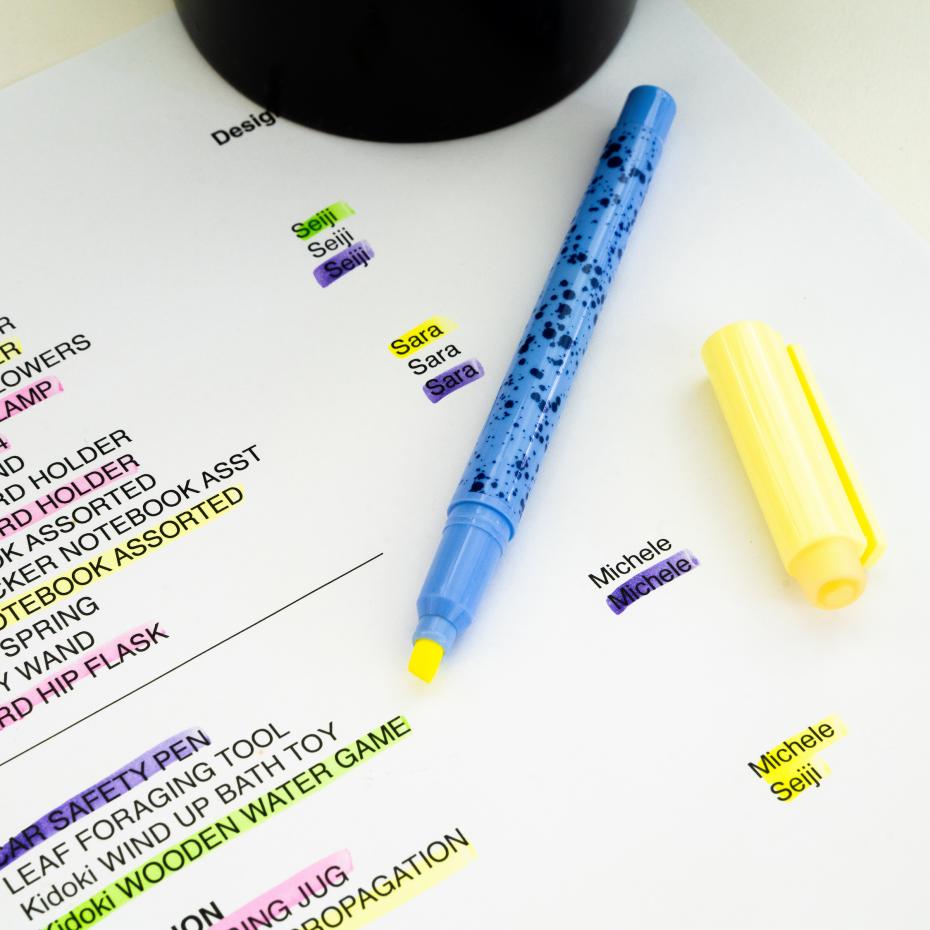 Desig
Seiji
Seiji
Seiji
Sara
Sara
Sara
LOWERS
LAMP
RD HOLDER
RD HOLDER
OK ASSORTED
CKER NOTEBOOK ASST
OTEBOOK ASSORTED
SPRING
Y WAND
RD HIP FLASK
Michele
Michele
CAR SAFETY PEN
LEAF FORAGING TOOL
Kidoki WIND UP BATH TOY
Kidoki WOODEN WATER GAME
Michele
Seiji
ION
ING JUG
PROPAGATION